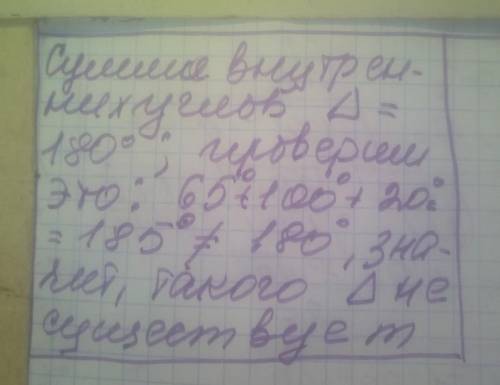 Сумма внутрен-
них углов Δ =
180°; проверим
это: 65°+100°+20°=
= 185° ≠ 180°, зна-
чит, такого Δ не
существует